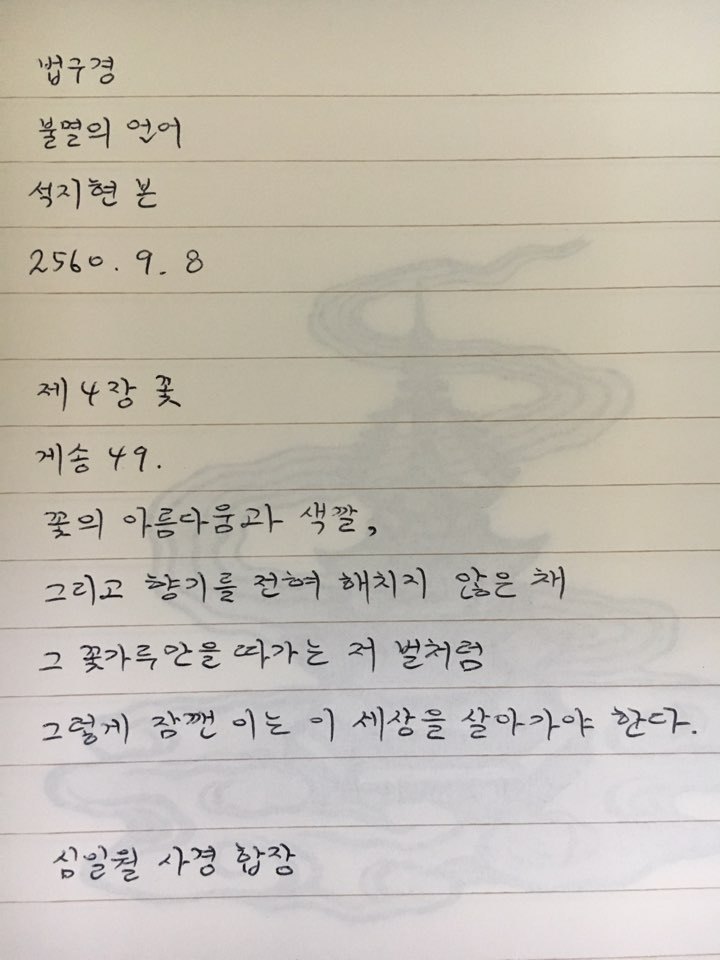 법구경
불멸의 언어
석지현 본
2560. 9. 8
제 4장 꽃
게송 49.
꽃의 아름다움과 색깔,
그리고 향기를 전혀 해치지 않은 채
그 꽃가루만을 따가는 저 벌처럼
그렇게 잠깬 이는 이 세상을 살아가야 한다.
심일월 사경 합장